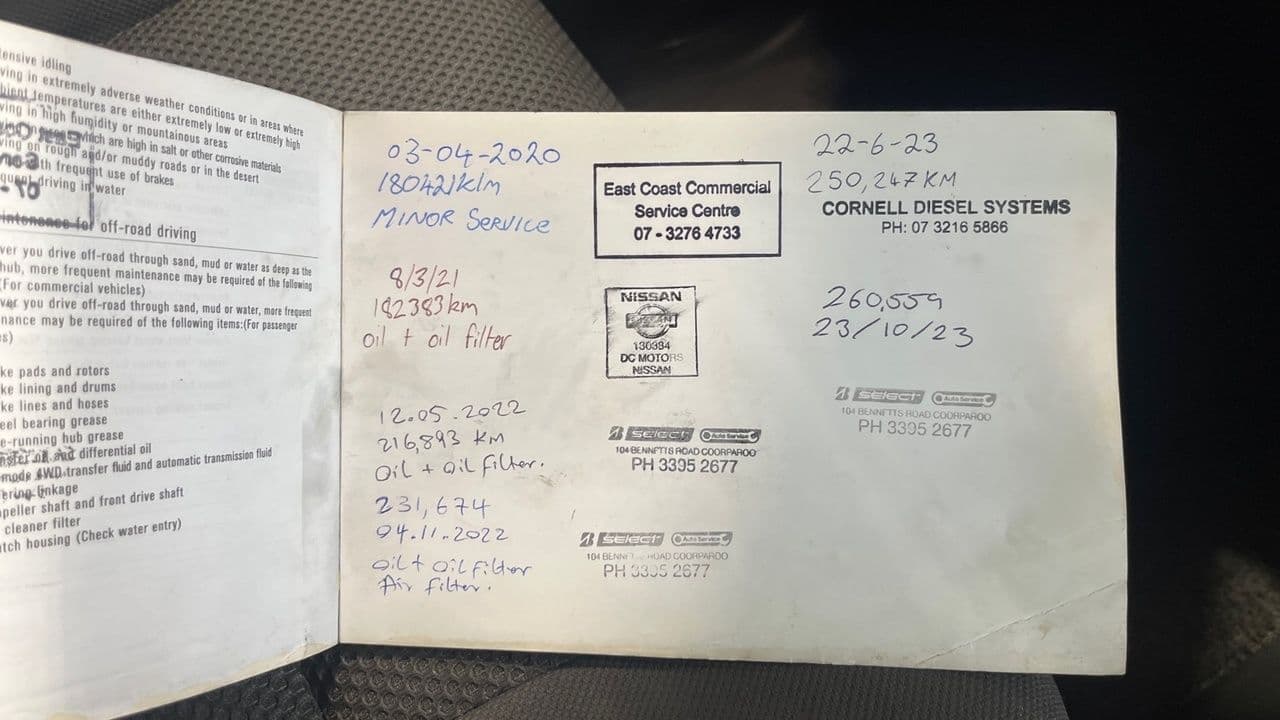 ensive idling
ving in extremely adverse weather conditions or in areas where
bient temperatures are either extremely low or extremely high
ving in high humidity or mountainous areas
which are high in salt or other corrosive materials
ving on rough and/or muddy roads or in the desert
th frequent use of brakes
quent driving in water
intenance for off-road driving
ver you drive off-road through sand, mud or water as deep as the
hub, more frequent maintenance may be required of the following
(For commercial vehicles)
ver you drive off-road through sand, mud or water, more frequent
nance may be required of the following items:(For passenger
es)
ke pads and rotors
ke lining and drums
ke lines and hoses
eel bearing grease
e-running hub grease
nsfer oil and differential oil
mode 4WD transfer fluid and automatic transmission fluid
ering linkage
peller shaft and front drive shaft
cleaner filter
tch housing (Check water entry)
03-04-2020
180421km
MINOR SERVICE
East Coast Commercial
Service Centre
07 - 3276 4733
8/3/21
182383km
oil + oil filter
NISSAN
NISSAN
DC MOTORS
NISSAN
12.05.2022
216,893 KM
Oil + Oil filter.
SELECT Auto Service
104 BENNETTS ROAD COORPAROO
PH 3395 2677
231,674
04.11.2022
Oil + Oil filter
Air filter.
SELECT Auto Service
104 BENNETTS ROAD COORPAROO
PH 3395 2677
22-6-23
250,247KM
CORNELL DIESEL SYSTEMS
PH: 07 3216 5866
260,559
23/10/23
SELECT Auto Service
104 BENNETTS ROAD COORPAROO
PH 3395 2677